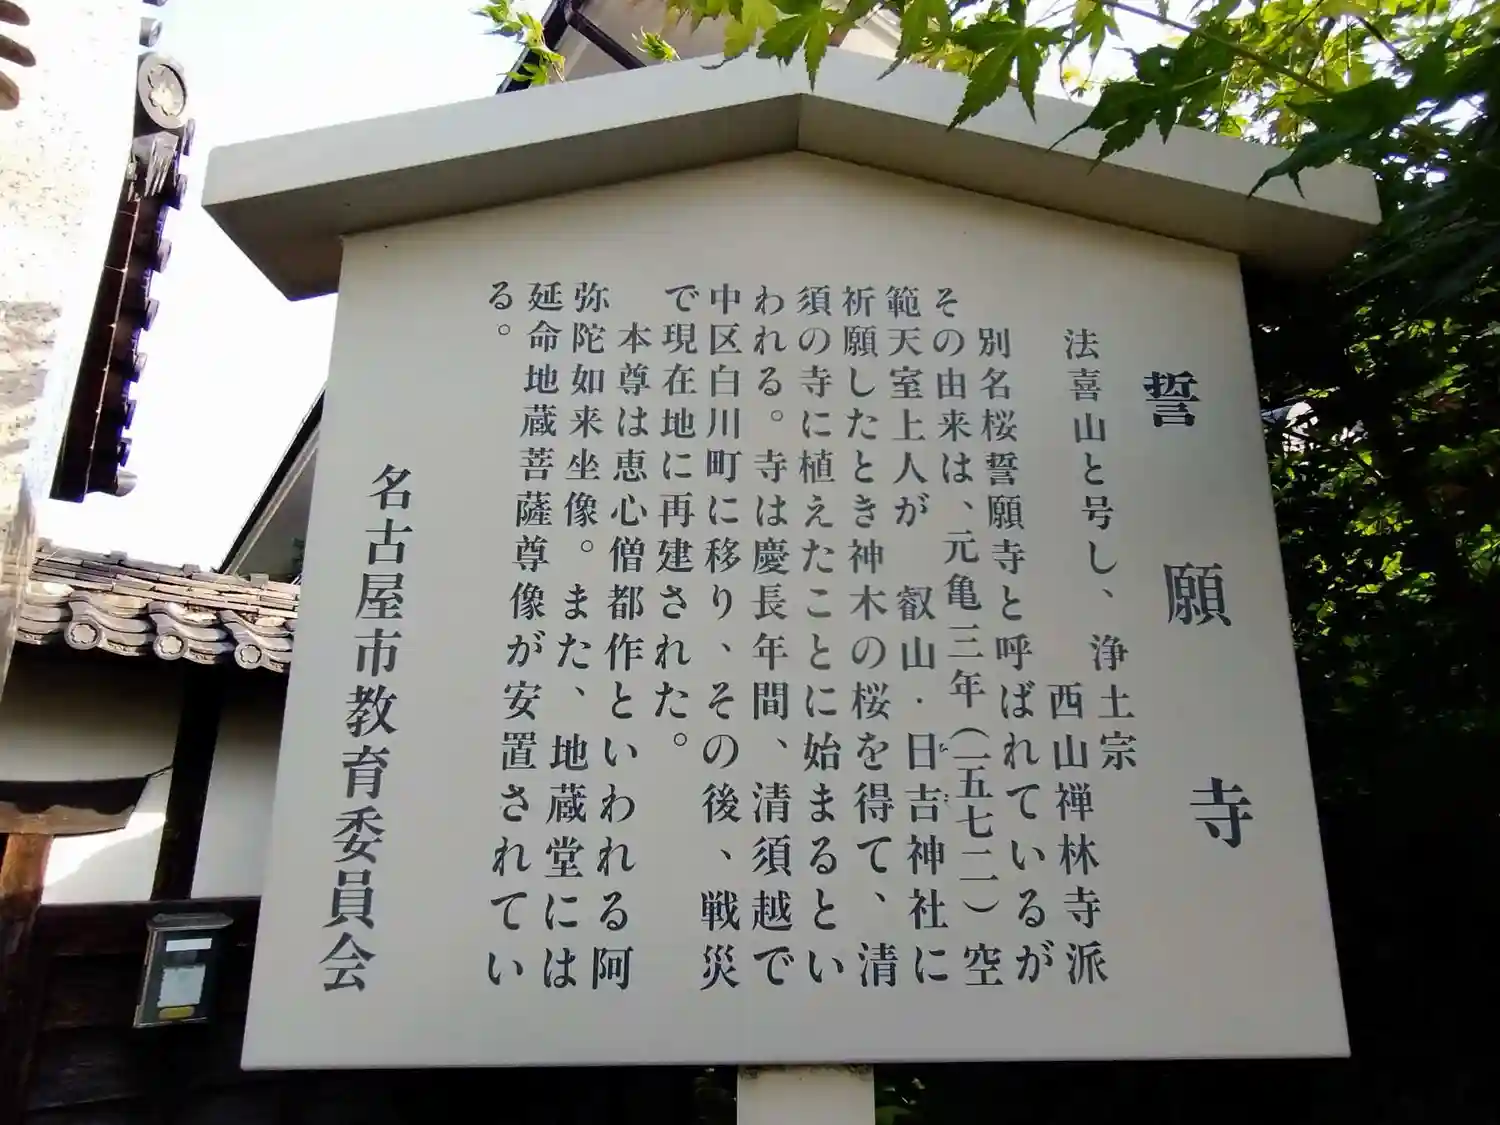 誓願寺
法喜山と号し、浄土宗
西山禅林寺派
別名桜誓願寺と呼ばれているが
その由来は、元亀三年(一五七二)空
範天室上人が 叡山・日吉神社に
ひ え
祈願したとき神木の桜を得て、清
須の寺に植えたことに始まるとい
われる。寺は慶長年間、清須越で
中区白川町に移り、その後、戦災
で現在地に再建された。
本尊は恵心僧都作といわれる阿
弥陀如来坐像。また、地蔵堂には
延命地蔵菩薩尊像が安置されてい
る。
名古屋市教育委員会